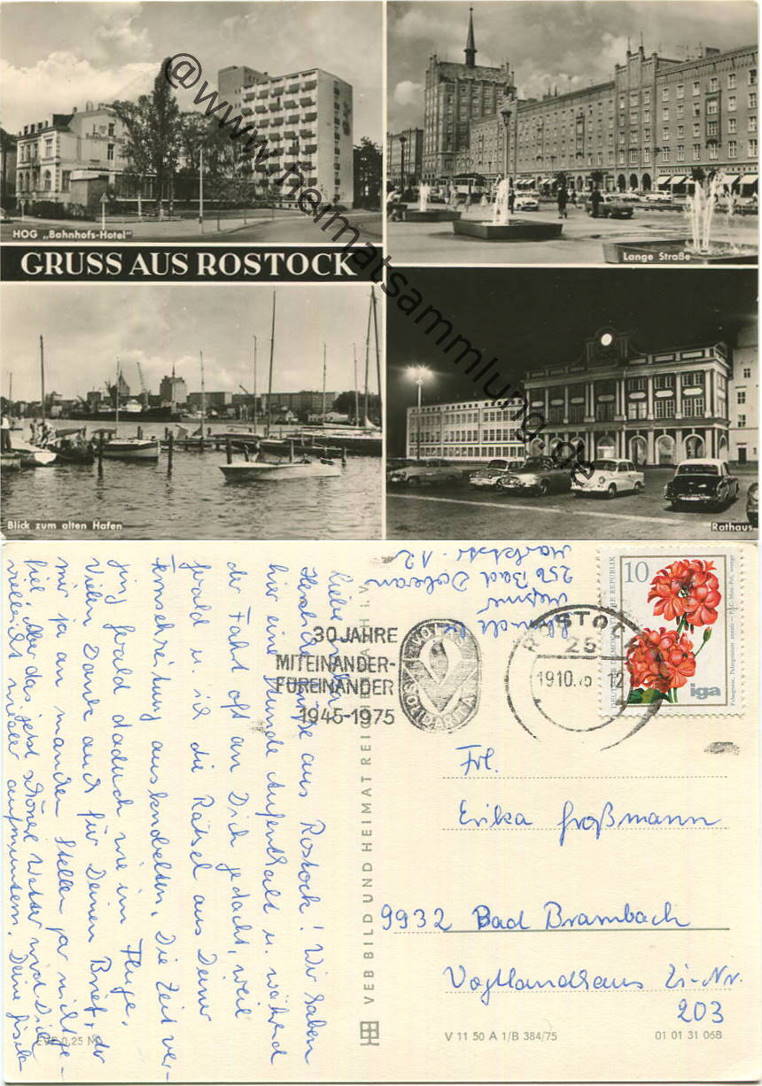 @www.heimatsammlung.de
HOG „Bahnhofs-Hotel"
Lange Straße
GRUSS AUS ROSTOCK
Blick zum alten Hafen
Rathaus
Liebe
Herzliche Grüße aus Rostock! Wir haben
hier eine Stunde Aufenthalt u. während
der Fahrt oft an Dich gedacht, weil
Jewald u. ich die Rätsel aus Deiner
Fernsehzeitung ausknobelten. Die Zeit ver-
ging Jewald dadurch wie im Fluge.
Vielen Dank auch für Deinen Brief, der
mir ja an manchen Stellen gar nicht ge-
fiel. Aber das jetzt schöne Wetter wird Dich
vielleicht wieder aufmuntern. Deine Gisela
256 Bad Doberan
Marktstr. 12
30 JAHRE
MITEINANDER-
FÜREINANDER
1945-1975
SOLIDARITÄT
ROSTOCK
25
19.10.75 12
10
iga
VEB BILD UND HEIMAT REICHENBACH I. V.
Frl.
Erika Großmann
9932 Bad Brambach
Vogtlandhaus Zi-Nr.
203
EVP 0,25 M
V 11 50 A 1/B 384/75
01 01 31 068